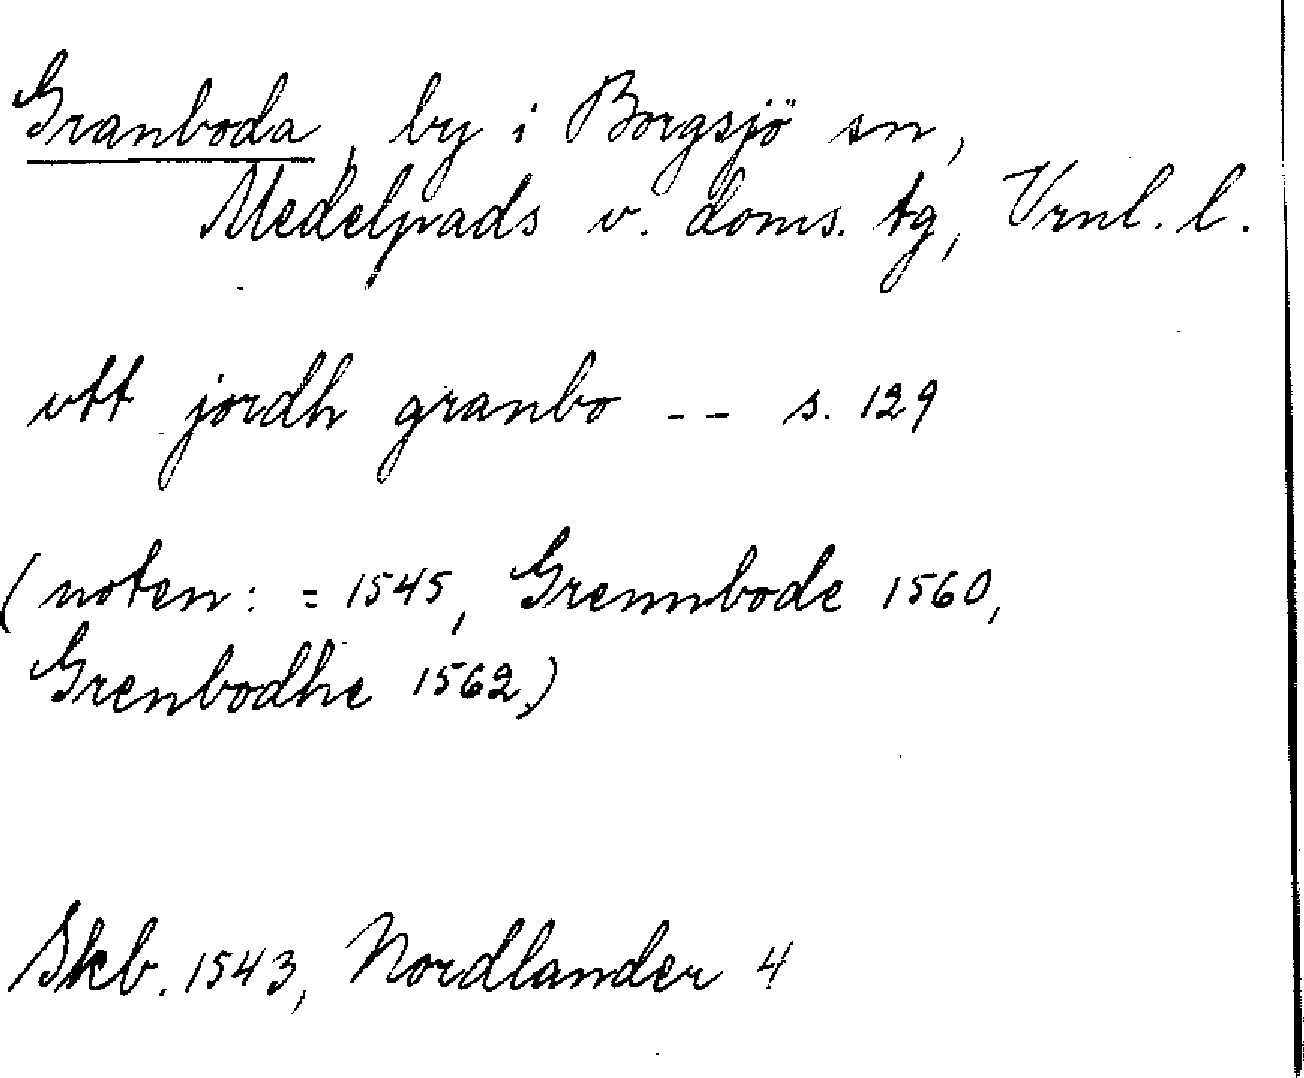 Granboda, by i Borgsjö sn,
Medelpads v. doms. tg, Vrnl. l.
vtt jordh granbo -- s. 129
(noten: = 1545, Grennbode 1560,
Grenbodhe 1562,)
Skb. 1543, Nordlander 4